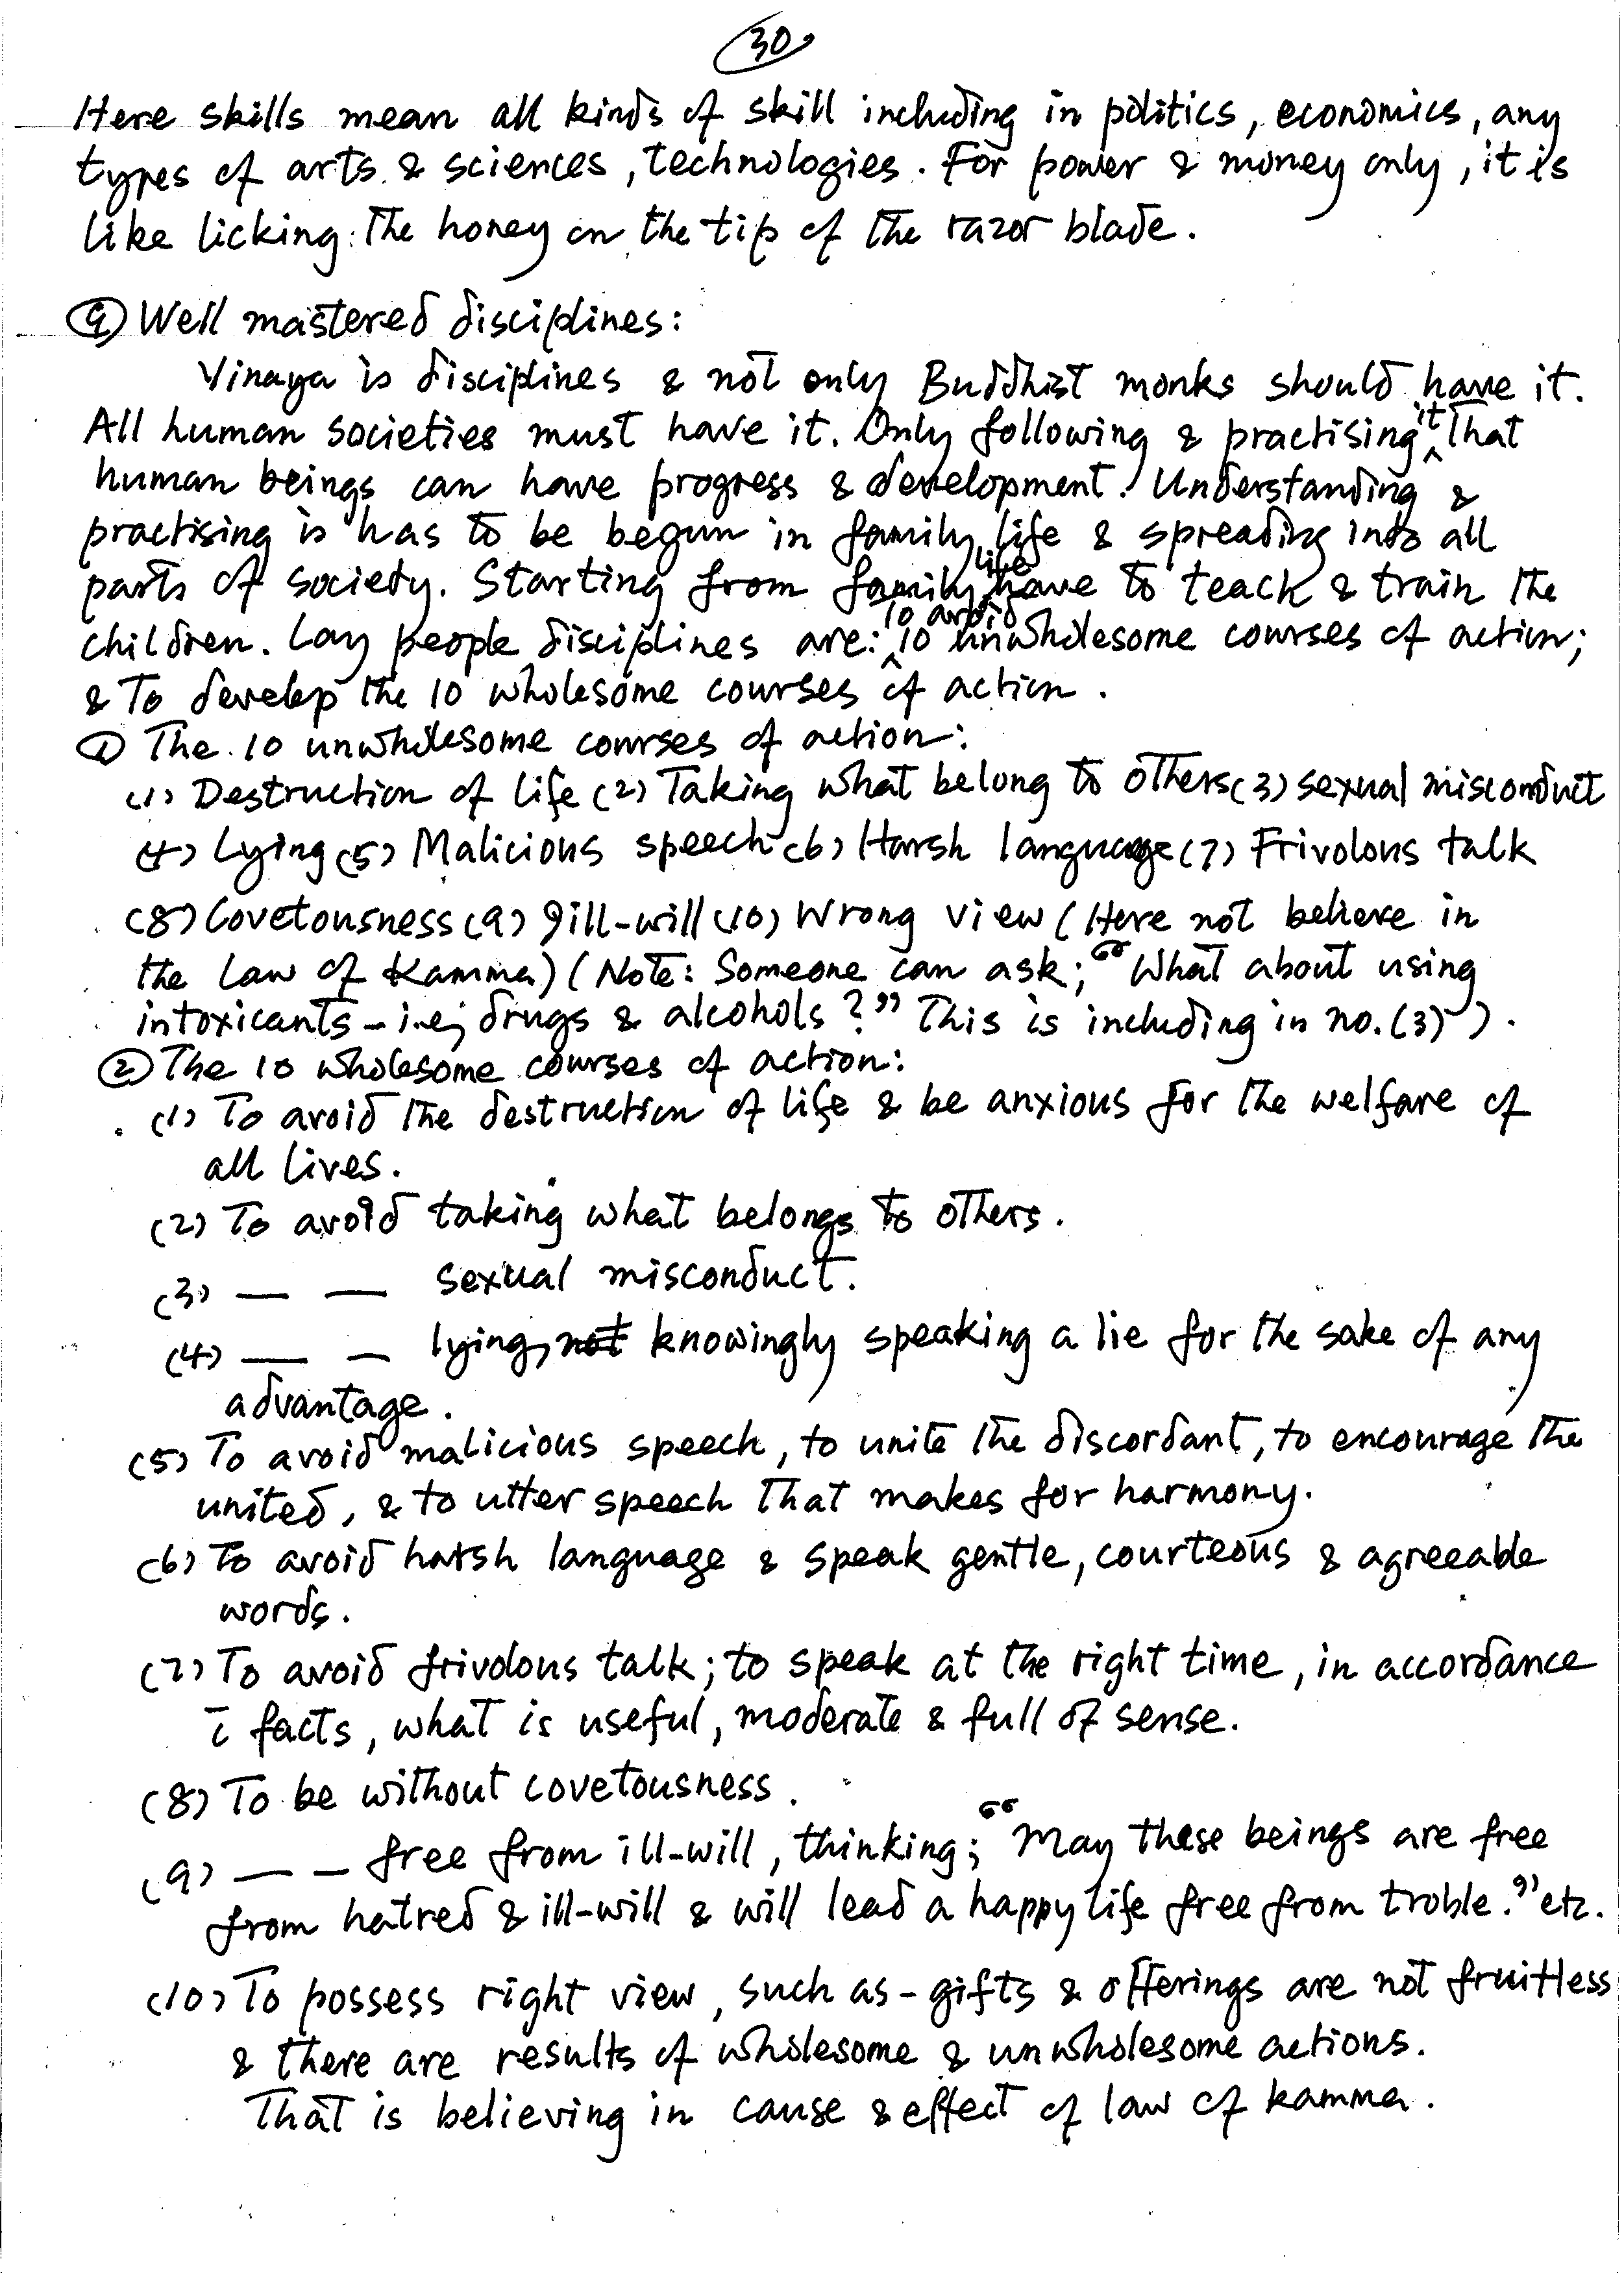 30
Here skills mean all kinds of skill including in politics, economics, any
types of arts & sciences, technologies. For power & money only, it is
like licking the honey on the tip of the razor blade.
⑨ Well mastered disciplines:
Vinaya is disciplines & not only Buddhist monks should have it.
All human societies must have it. Only following & practising it that
human beings can have progress & development. Understanding &
practising is has to be begun in family life & spreading into all
parts of society. Starting from family life have to teach & train the
children. Lay people disciplines are: to avoid 10 unwholesome courses of action;
& To develop the 10 wholesome courses of action.
① The 10 unwholesome courses of action:
(1) Destruction of life (2) Taking what belong to others (3) sexual misconduct
(4) Lying (5) Malicious speech (6) Harsh language (7) Frivolous talk
(8) Covetousness (9) Ill-will (10) Wrong view (Here not believe in
the law of Kamma) (Note: Someone can ask; "What about using
intoxicants - i.e; drugs & alcohols?" This is including in no. (3)).
② The 10 wholesome courses of action:
(1) To avoid the destruction of life & be anxious for the welfare of
all lives.
(2) To avoid taking what belongs to others.
(3) — — sexual misconduct.
(4) — — lying, not knowingly speaking a lie for the sake of any
advantage.
(5) To avoid malicious speech, to unite the discordant, to encourage the
united, & to utter speech that makes for harmony.
(6) To avoid harsh language & speak gentle, courteous & agreeable
words.
(7) To avoid frivolous talk; to speak at the right time, in accordance
c̄ facts, what is useful, moderate & full of sense.
(8) To be without covetousness.
(9) — — free from ill-will, thinking; "May these beings are free
from hatred & ill-will & will lead a happy life free from troble." etc.
(10) To possess right view, such as - gifts & offerings are not fruitless
& there are results of wholesome & unwholesome actions.
That is believing in cause & effect of law of kamma.